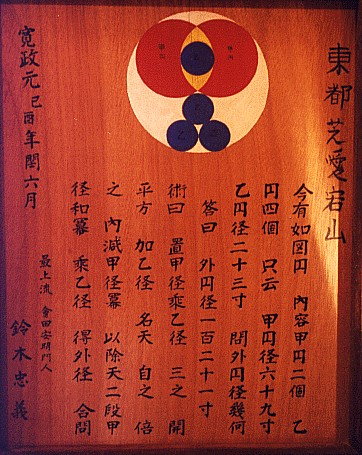 東都芝愛宕山
今有如図円 内容甲円二個 乙
円四個 只云 甲円径六十九寸
乙円径二十三寸 問外円径幾何
答曰 外円径一百二十一寸
術曰 置甲径乗乙径 三之 開
平方 加乙径 名天 自之 倍
之 内減甲径冪 以除天二段甲
径和冪 乗乙径 得外径 合問
最上流 會田安明門人
鈴木忠義
寛政元己酉年閏六月
甲円
甲円
乙
乙
乙